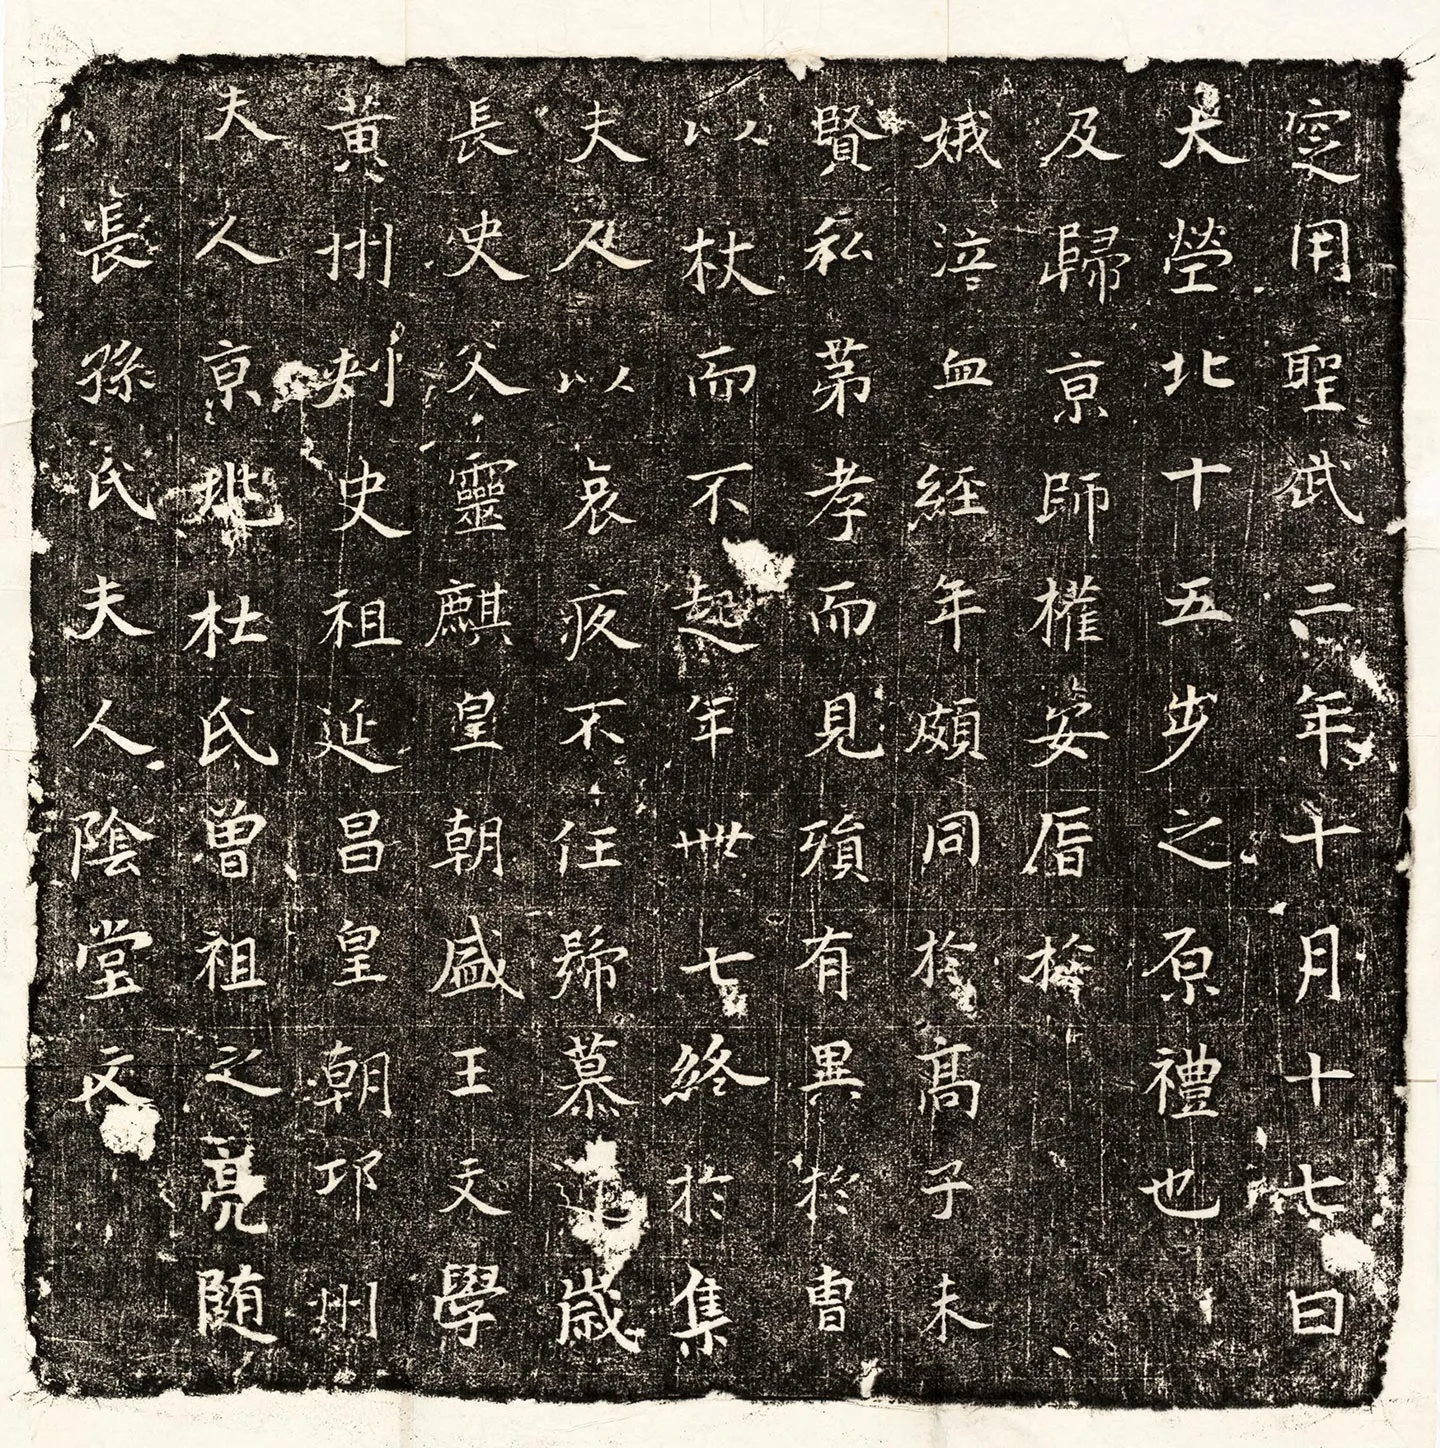 長孫氏夫人陰堂文
夫人京兆杜氏曾祖之亮随
黃州刾史祖延昌皇朝邛州
長史父靈麒皇朝盛王文學
夫人以哀疚不任號慕歲
以杖而不起年卌七終於集
賢私苐孝而見殞有異於曹
娥泣血經年頗同於高子未
及歸京師權安厝於
大塋北十五步之原禮也
窆用聖武二年十月十七日